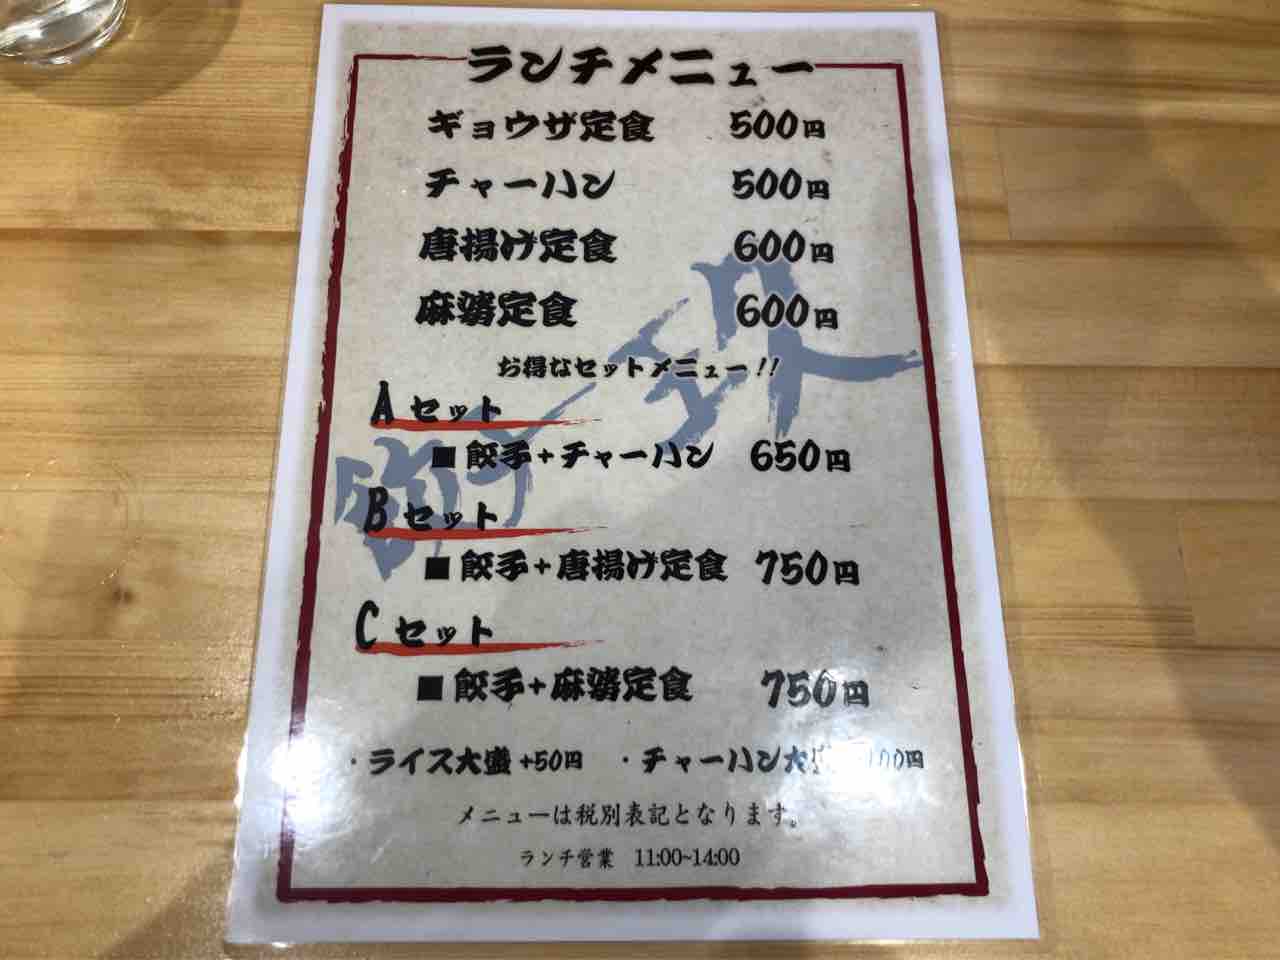 ランチメニュー
ギョウザ定食 500円
チャーハン 500円
唐揚げ定食 600円
麻婆定食 600円
お得なセットメニュー!!
Aセット
■餃子+チャーハン 650円
Bセット
■餃子+唐揚げ定食 750円
Cセット
■餃子+麻婆定食 750円
・ライス大盛+50円 ・チャーハン大盛 100円
メニューは税別表記となります。
ランチ営業 11:00~14:00